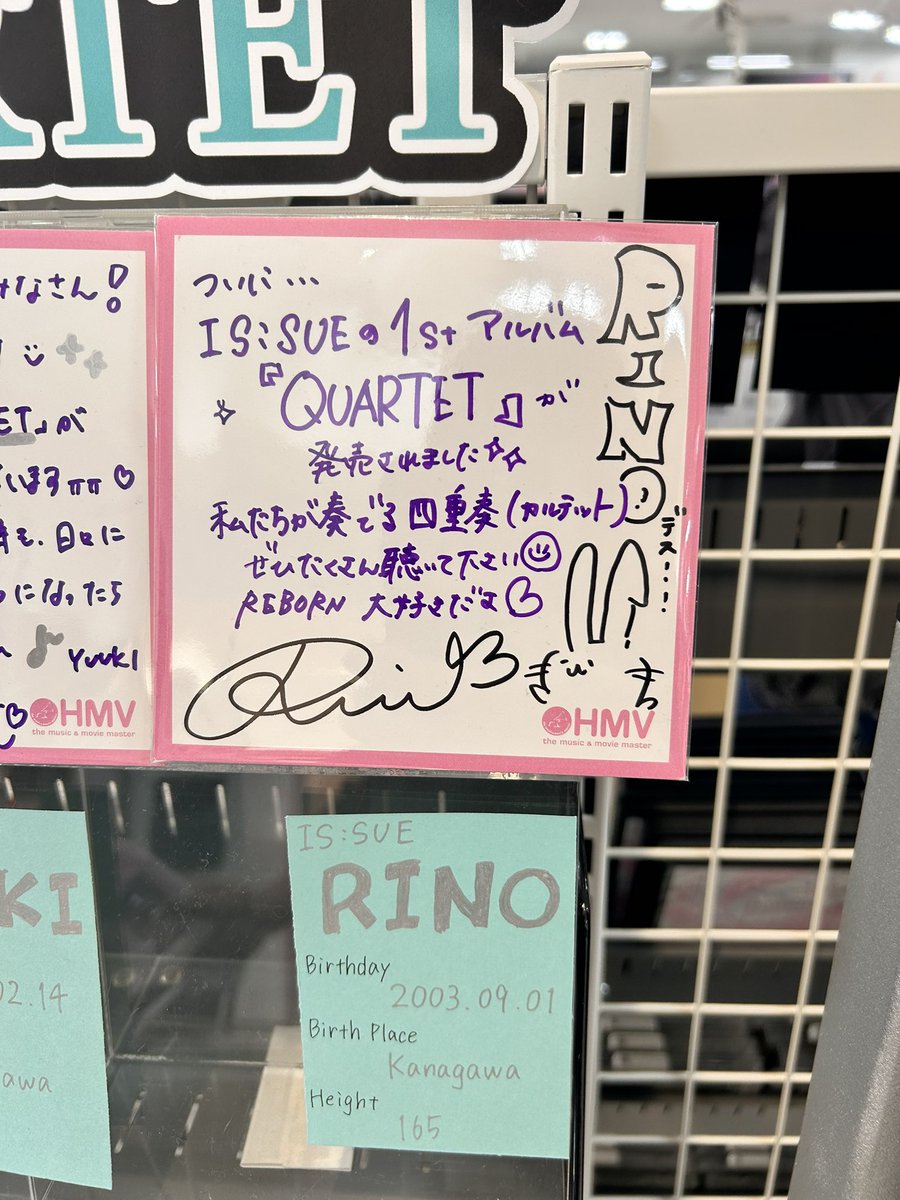 TET
なさん!
ET」が
いますππ♡
も、日々に
になったら
YUUKI
HMV
the music & movie master
ついに…
IS:SUEの1stアルバム
『QUARTET』が
発売されました
私たちが奏でる四重奏(カルテット)
ぜひたくさん聴いて下さい
REBORN 大好きだよ
RINO
デス....
HMV
the music & movie master
KI
02.14
awa
IS:SUE
RINO
Birthday
2003.09.01
Birth Place
Kanagawa
Height
165